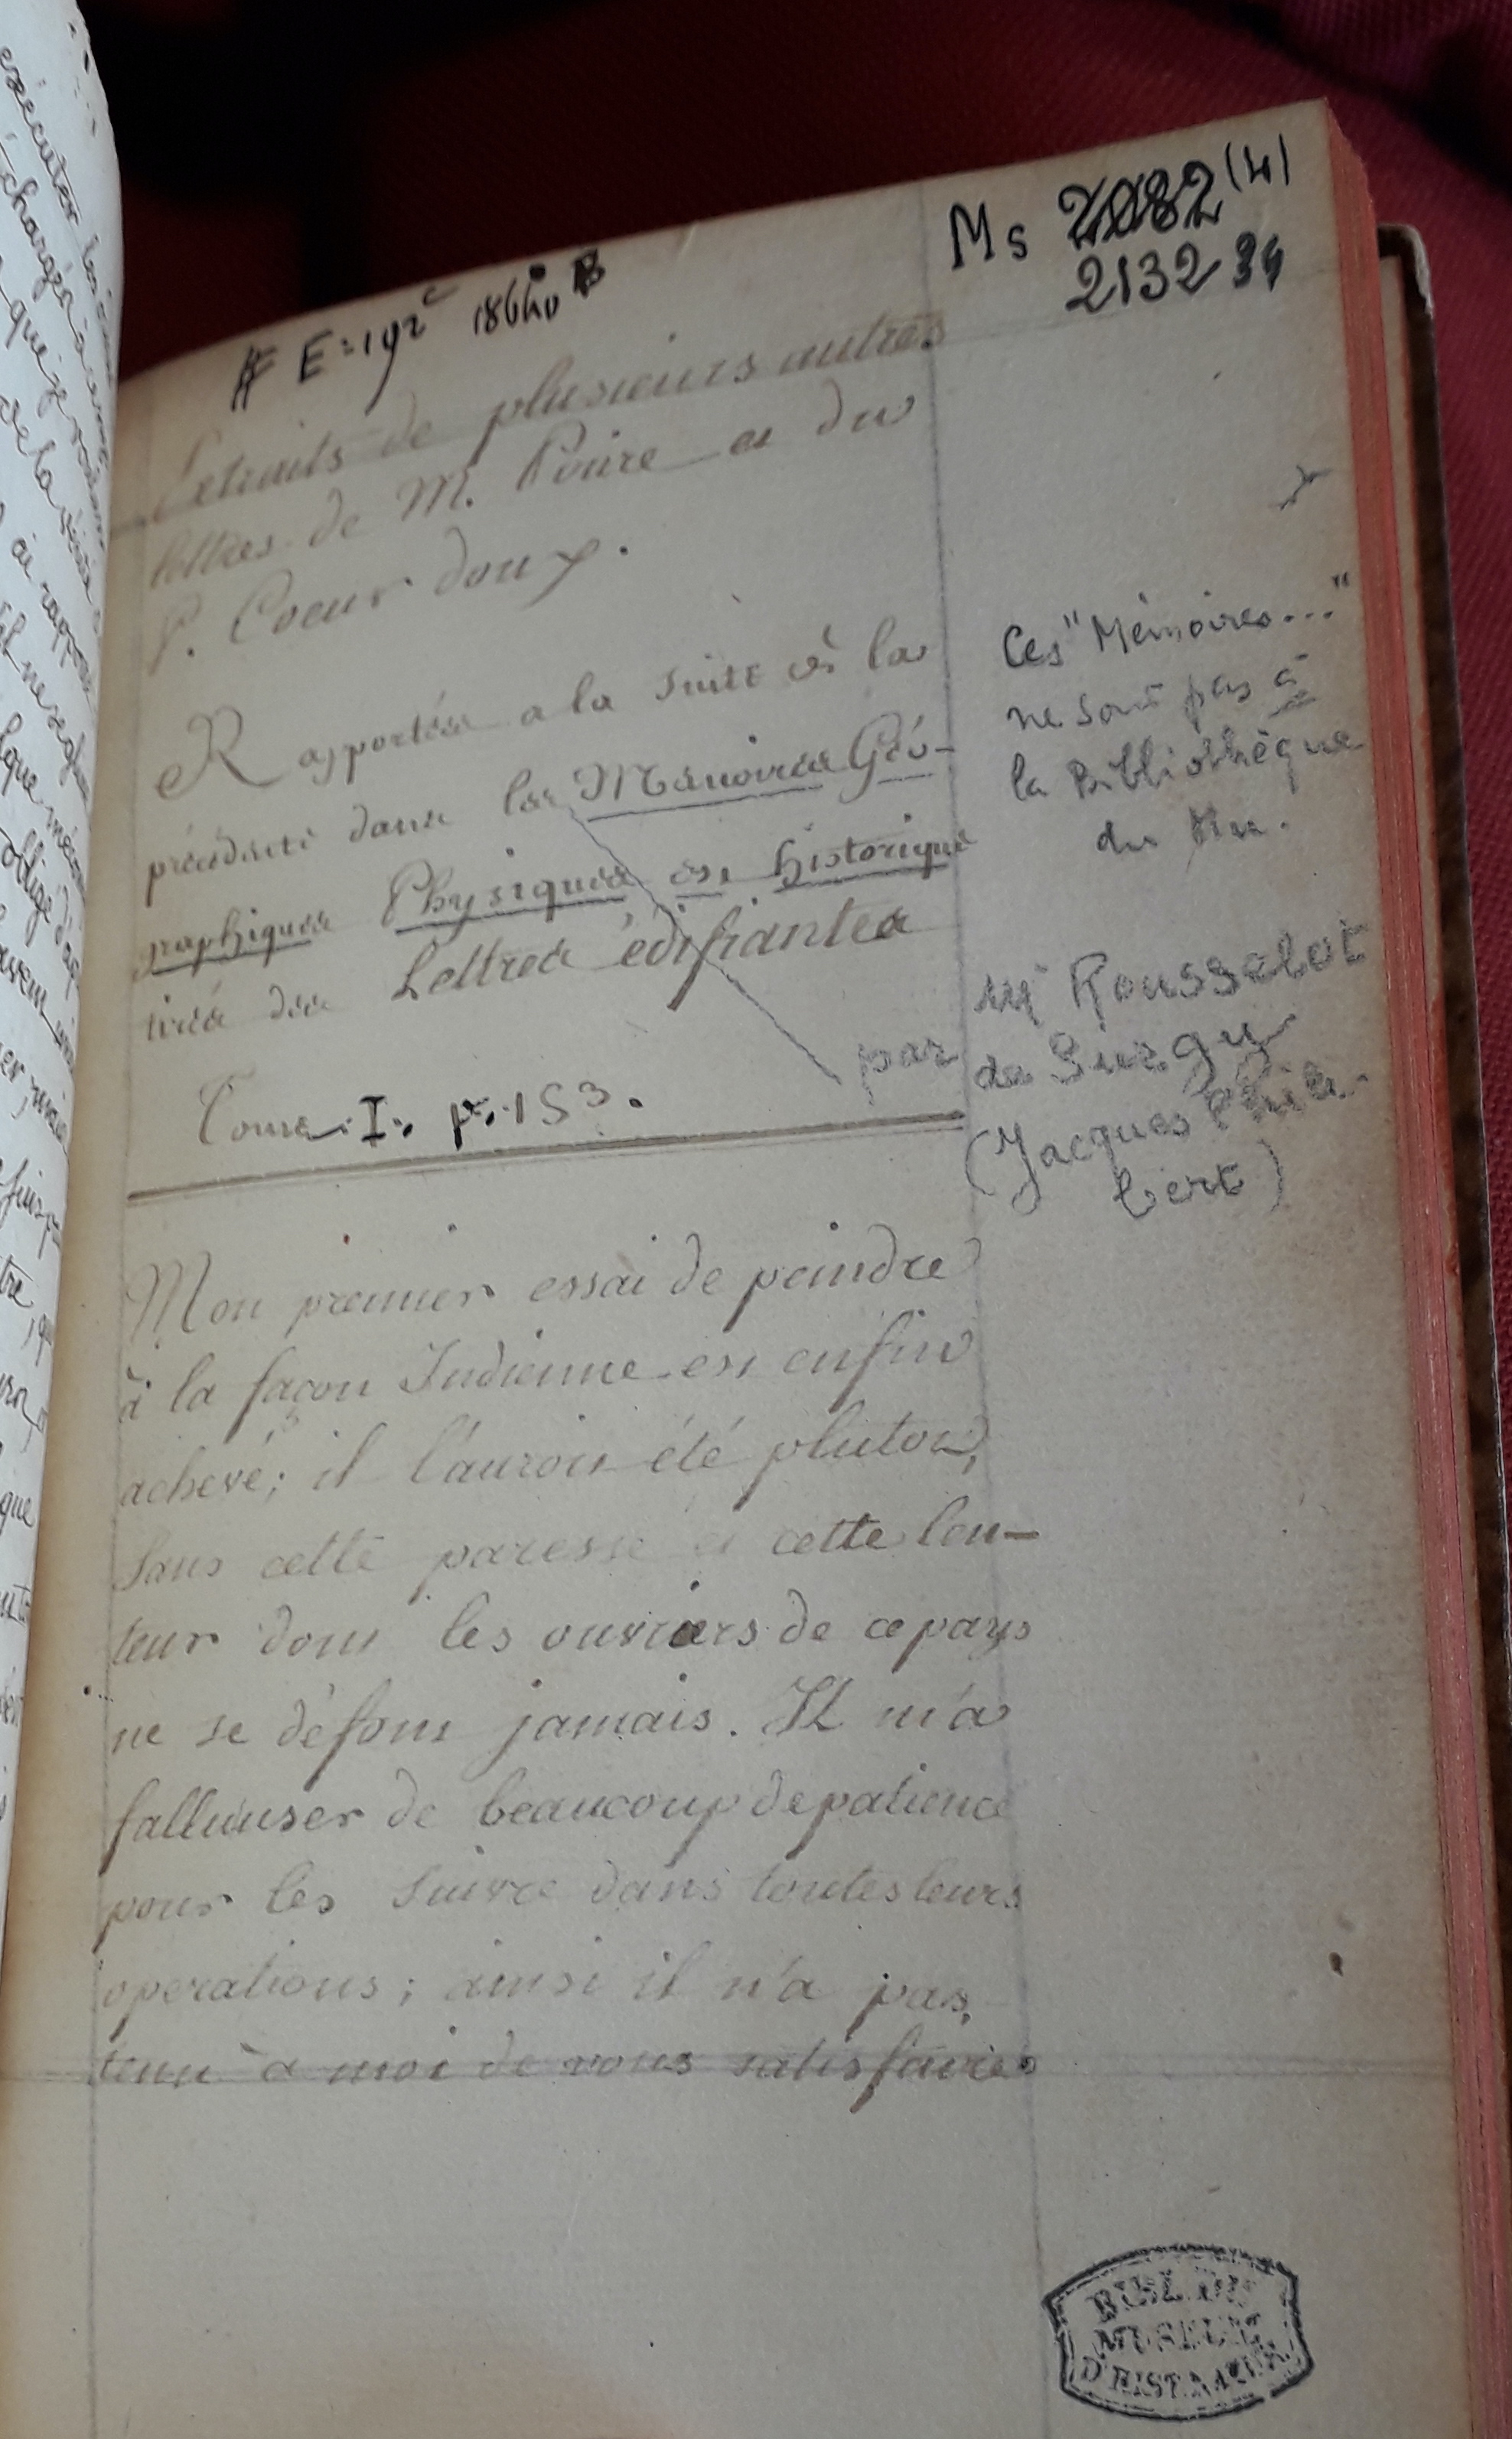 Ms 2082 (4)
2132 34
E = 192
Extraits de plusieurs autres
lettres de M. Poivre et du
P. Coeur doux.
Rapportées a la suite de la
précédente dans les Mémoires Géo-
graphiques Physiques et historiques
tirés des Lettres édifiantes
Tome I. p. 153.
Ces "Mémoires..."
ne sont pas à
la Bibliothèque
du Mu.
par Mr Rousselot
de Surgy
(Jacques Phili-
bert)
Mon premier essai de peindre
à la façon Indienne est enfin
achevé; il l'auroit été plutot,
sans cette paresse et cette len-
teur dont les ouvriers de ce pays
ne se défont jamais. Il m'a
fallu user de beaucoup de patience
pour les suivre dans toutes leurs
operations; ainsi il n'a pas
tenu à moi de vous satisfaire
BIBL. DU
MUSEUM
D'HIST. NATUR.